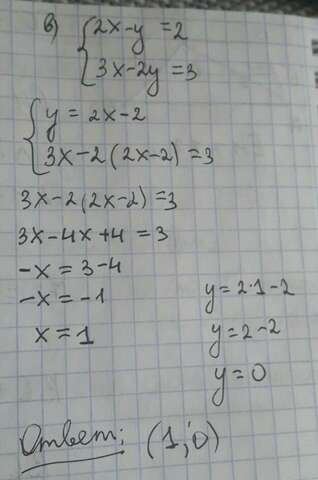 в) { 2x-y = 2
3x-2y = 3
{ y = 2x-2
3x-2(2x-2) = 3
3x-2(2x-2) = 3
3x-4x+4 = 3
-x = 3-4
-x = -1
x = 1
y = 2·1-2
y = 2-2
y = 0
Ответ: (1;0)